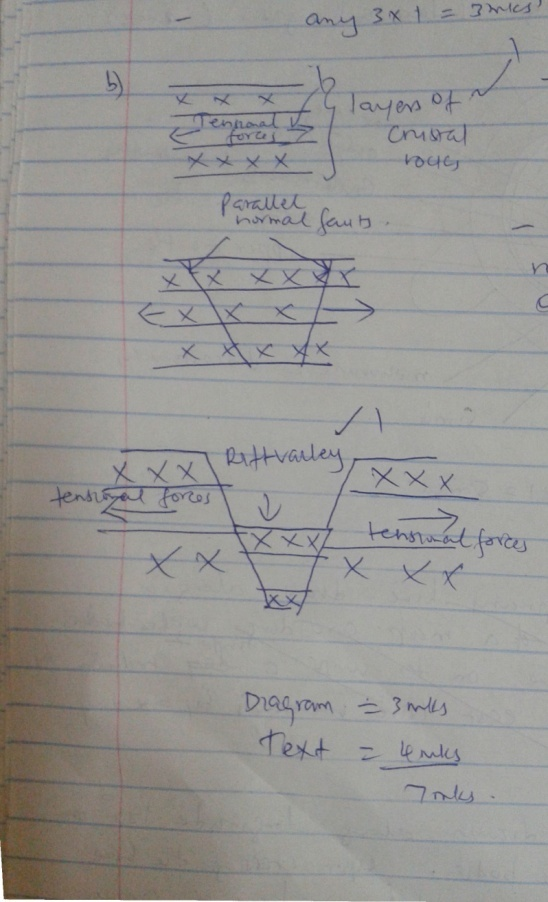 any 3 x 1 = 3mks'
b)
x x x
Tensional
forces
x x x x
layers of
Crustal
rocks
1
Parallel
normal faults.
x x x x x x
x x x
x x x x x
1
Rift valley
x x x
x x x
tensional forces
tensional forces
x x x
x x
x x x
x x
Diagram = 3mks
Text = 4mks
7mks.